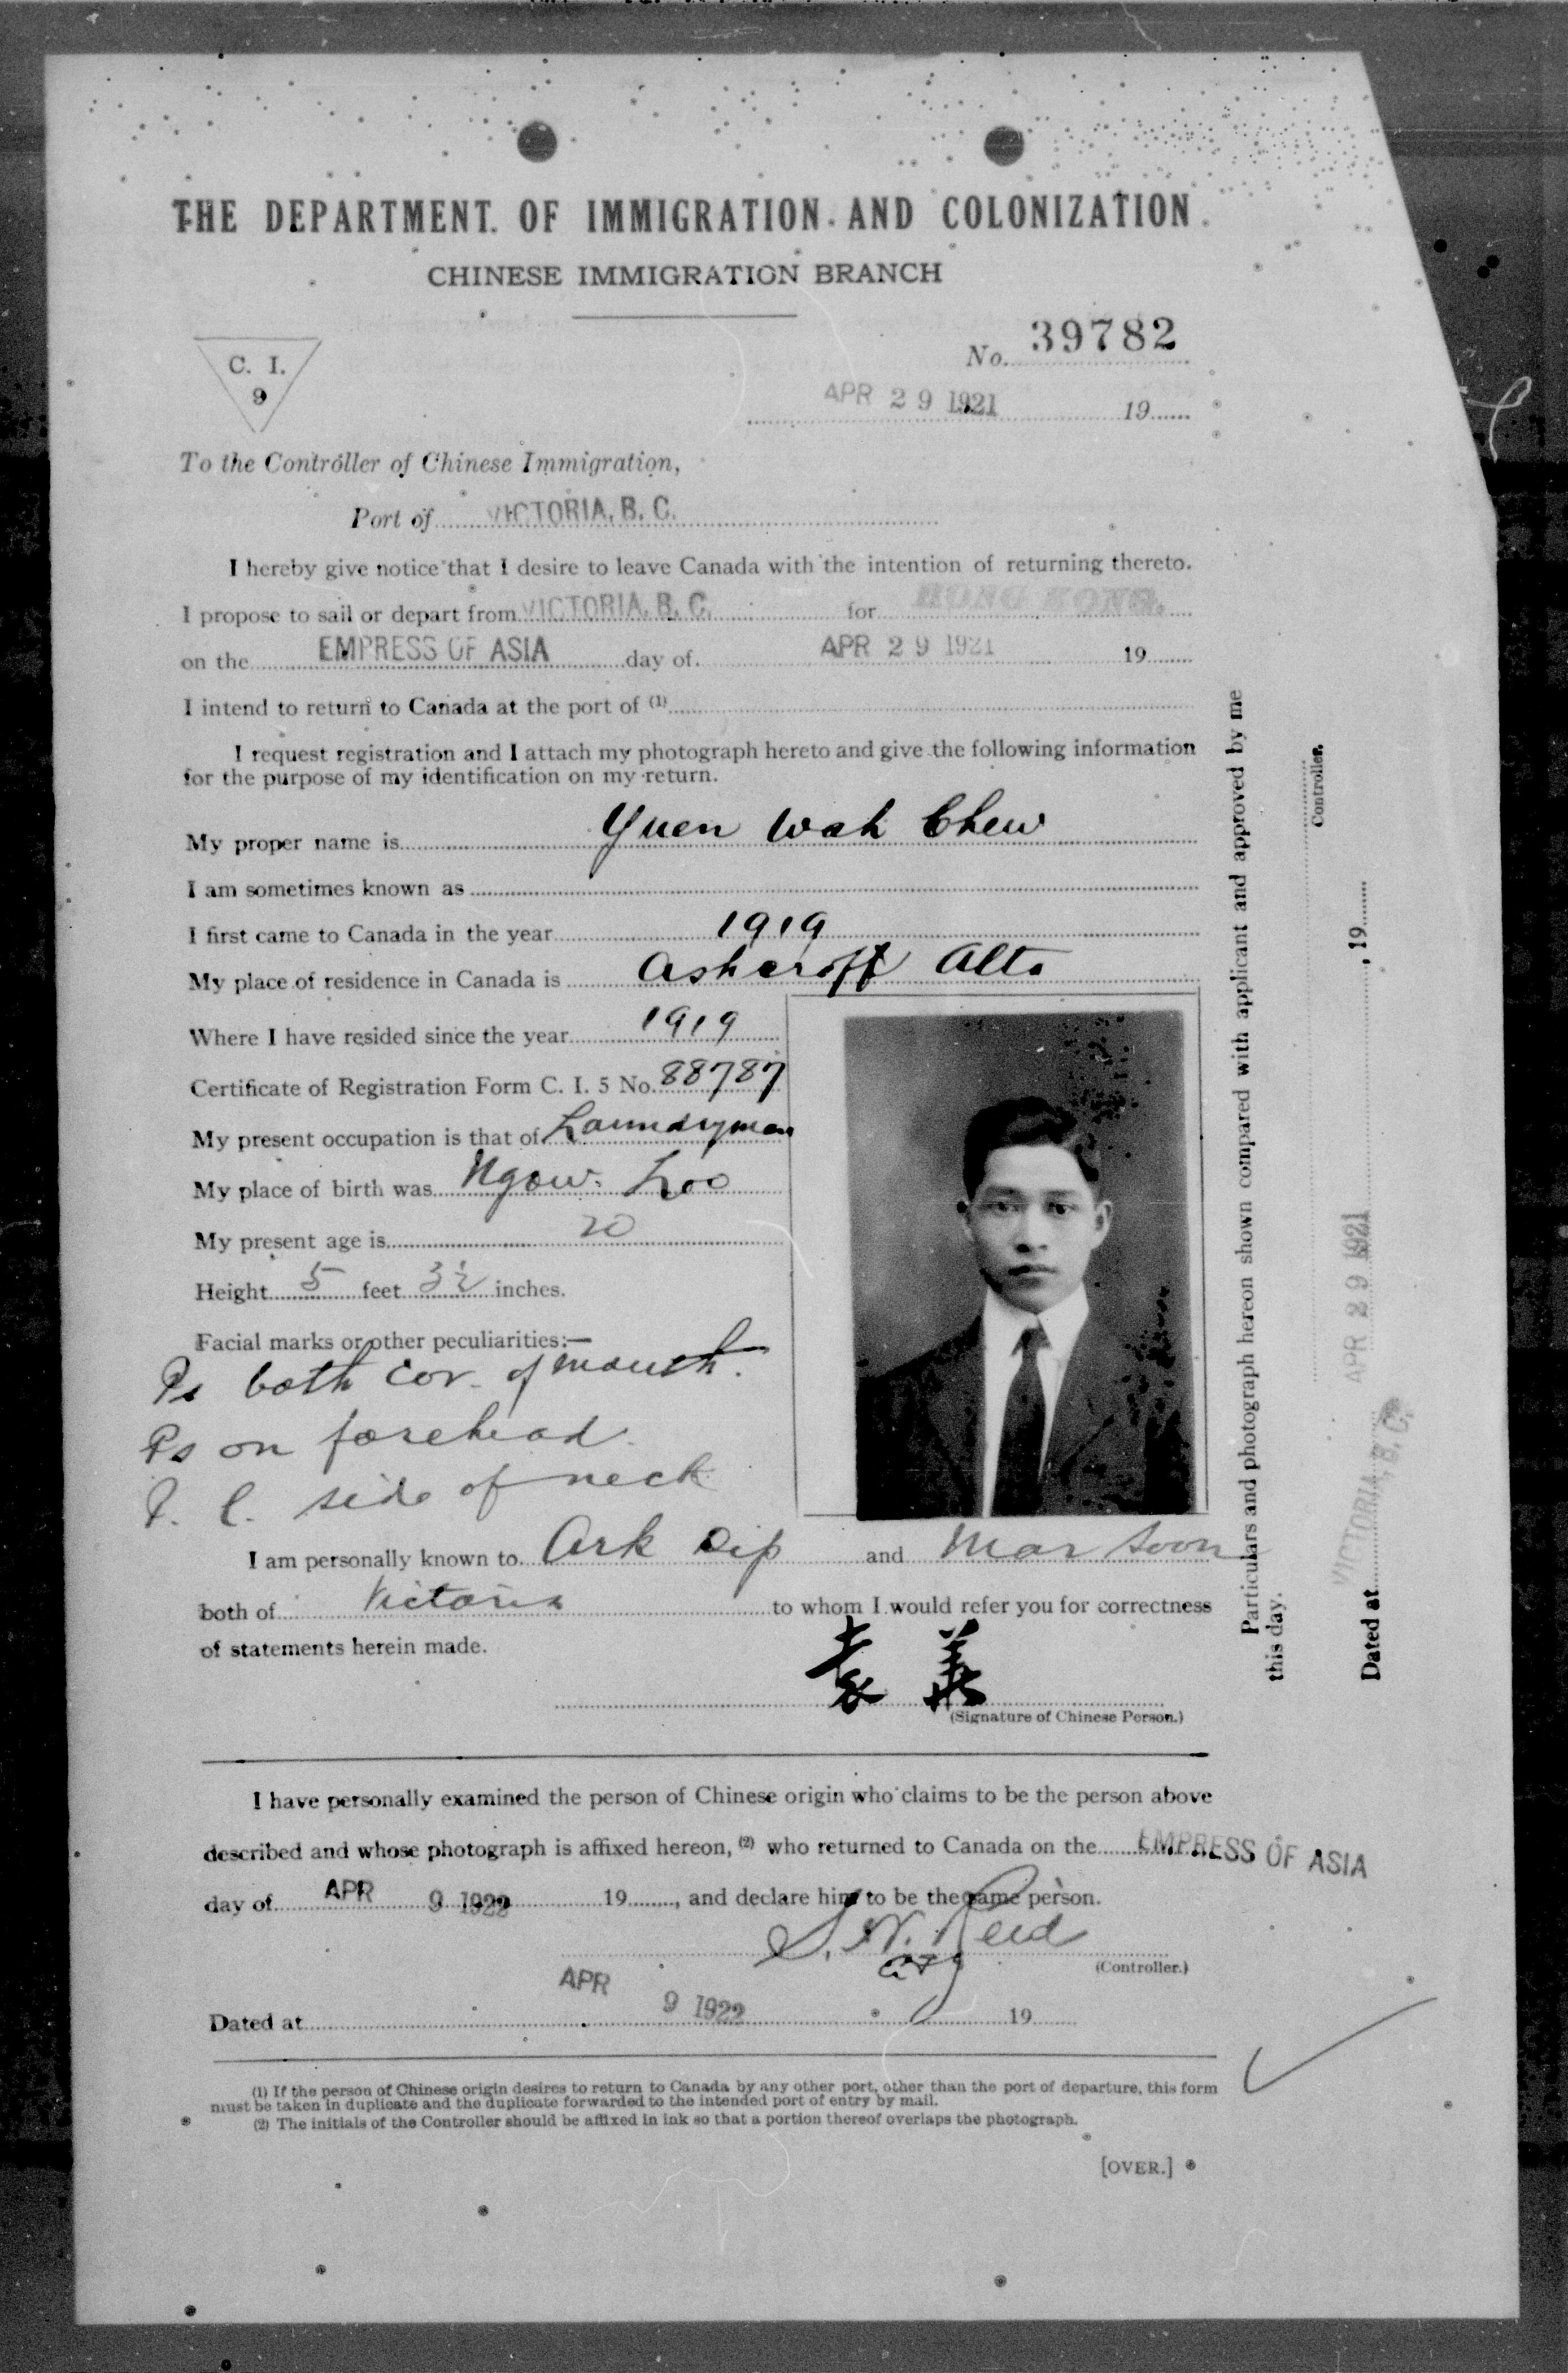 THE DEPARTMENT OF IMMIGRATION AND COLONIZATION
CHINESE IMMIGRATION BRANCH
C. I.
9
No. 39782
APR 29 1921 19
To the Controller of Chinese Immigration,
Port of VICTORIA, B. C.
I hereby give notice that I desire to leave Canada with the intention of returning thereto.
I propose to sail or depart from VICTORIA, B. C. for HONG KONG.
on the EMPRESS OF ASIA day of APR 29 1921 19
I intend to return to Canada at the port of (1)
I request registration and I attach my photograph hereto and give the following information
for the purpose of my identification on my return.
My proper name is Yuen Wah Chew
I am sometimes known as
I first came to Canada in the year 1919
My place of residence in Canada is Ashcroft Alta
Where I have resided since the year 1919
Certificate of Registration Form C. I. 5 No. 88787
My present occupation is that of Laundryman
My place of birth was Ngow Loo
My present age is 20
Height 5 feet 3½ inches.
Facial marks or other peculiarities:—
Ps both cor. of mouth.
Ps on forehead.
P. l. side of neck
I am personally known to Ark Dip and Mar Soon
both of Victoria to whom I would refer you for correctness
of statements herein made.
袁 義
(Signature of Chinese Person.)
I have personally examined the person of Chinese origin who claims to be the person above
described and whose photograph is affixed hereon, (2) who returned to Canada on the EMPRESS OF ASIA
day of APR 9 1922 19, and declare him to be the same person.
S. N. Reid
(Controller.)
Dated at APR 9 1922 19
(1) If the person of Chinese origin desires to return to Canada by any other port, other than the port of departure, this form
must be taken in duplicate and the duplicate forwarded to the intended port of entry by mail.
(2) The initials of the Controller should be affixed in ink so that a portion thereof overlaps the photograph.
[OVER.]
Particulars and photograph hereon shown compared with applicant and approved by me
this day.
Controller.
APR 29 1921
Dated at VICTORIA, B. C. , 19